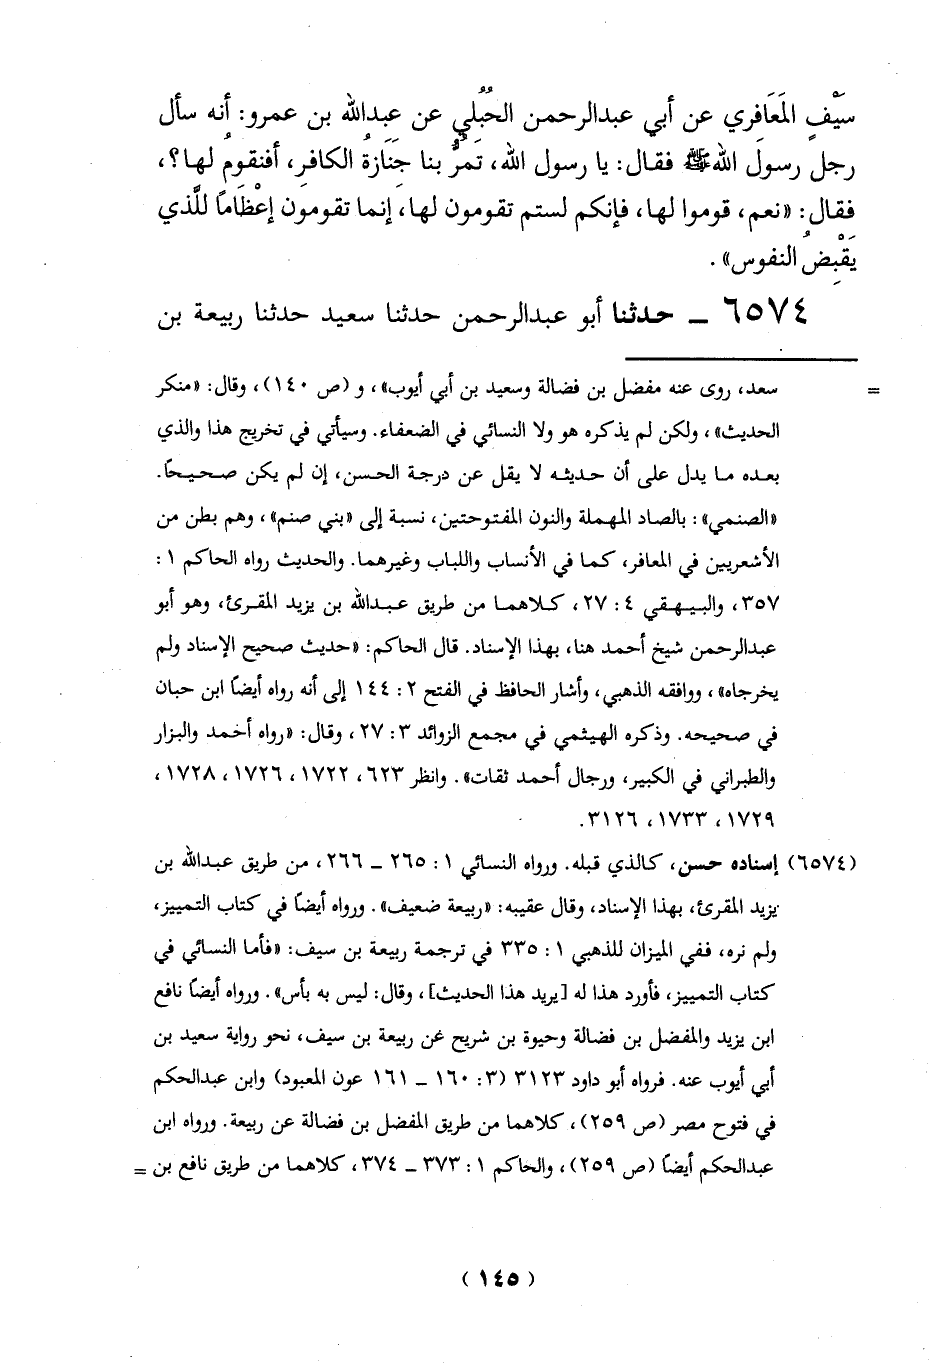 سَيْفٍ المَعَافري عن أبي عبدالرحمن الحُبُلِي عن عبدالله بن عمرو: أنه سأل
رجل رسولَ الله ﷺ فقال: يا رسول الله، تمرُّ بنا جَنَازةُ الكافرِ، أفنقومُ لها؟،
فقال: «نعم، قوموا لها، فإنكم لستم تقومون لها، إنما تقومون إعْظَامًا للَّذي
يَقْبِضُ النفوس».
٦٥٧٤ ــ حدثنا أبو عبدالرحمن حدثنا سعيد حدثنا ربيعة بن
= سعد، روى عنه مفضل بن فضالة وسعيد بن أبي أيوب»، و (ص ١٤٠)، وقال: «منكر
الحديث»، ولكن لم يذكره هو ولا النسائي في الضعفاء. وسيأتي في تخريج هذا والذي
بعده ما يدل على أن حديثه لا يقل عن درجة الحسن، إن لم يكن صحيحًا.
«الصنمي»: بالصاد المهملة والنون المفتوحتين، نسبة إلى «بني صنم»، وهم بطن من
الأشعريين في المعافر، كما في الأنساب واللباب وغيرهما. والحديث رواه الحاكم ١:
٣٥٧، والبيهقي ٤: ٢٧، كلاهما من طريق عبدالله بن يزيد المقرئ، وهو أبو
عبدالرحمن شيخ أحمد هنا، بهذا الإسناد. قال الحاكم: «حديث صحيح الإسناد ولم
يخرجاه»، ووافقه الذهبي، وأشار الحافظ في الفتح ٢: ١٤٤ إلى أنه رواه أيضًا ابن حبان
في صحيحه. وذكره الهيثمي في مجمع الزوائد ٣: ٢٧، وقال: «رواه أحمد والبزار
والطبراني في الكبير، ورجال أحمد ثقات». وانظر ٦٢٣، ١٧٢٢، ١٧٢٦، ١٧٢٨،
١٧٢٩، ١٧٣٣، ٣١٢٦.
(٦٥٧٤) إسناده حسن، كالذي قبله. ورواه النسائي ١: ٢٦٥ ــ ٢٦٦، من طريق عبدالله بن
يزيد المقرئ، بهذا الإسناد، وقال عقيبه: «ربيعة ضعيف». ورواه أيضًا في كتاب التمييز،
ولم نره، ففي الميزان للذهبي ١: ٣٣٥ في ترجمة ربيعة بن سيف: «فأما النسائي في
كتاب التمييز، فأورد هذا له [يريد هذا الحديث]، وقال: ليس به بأس». ورواه أيضًا نافع
ابن يزيد والمفضل بن فضالة وحيوة بن شريح عن ربيعة بن سيف، نحو رواية سعيد بن
أبي أيوب عنه. فرواه أبو داود ٣١٢٣ (٣: ١٦٠ ــ ١٦١ عون المعبود) وابن عبدالحكم
في فتوح مصر (ص ٢٥٩)، كلاهما من طريق المفضل بن فضالة عن ربيعة. ورواه ابن
عبدالحكم أيضًا (ص ٢٥٩)، والحاكم ١: ٣٧٣ ــ ٣٧٤، كلاهما من طريق نافع بن =
(١٤٥)